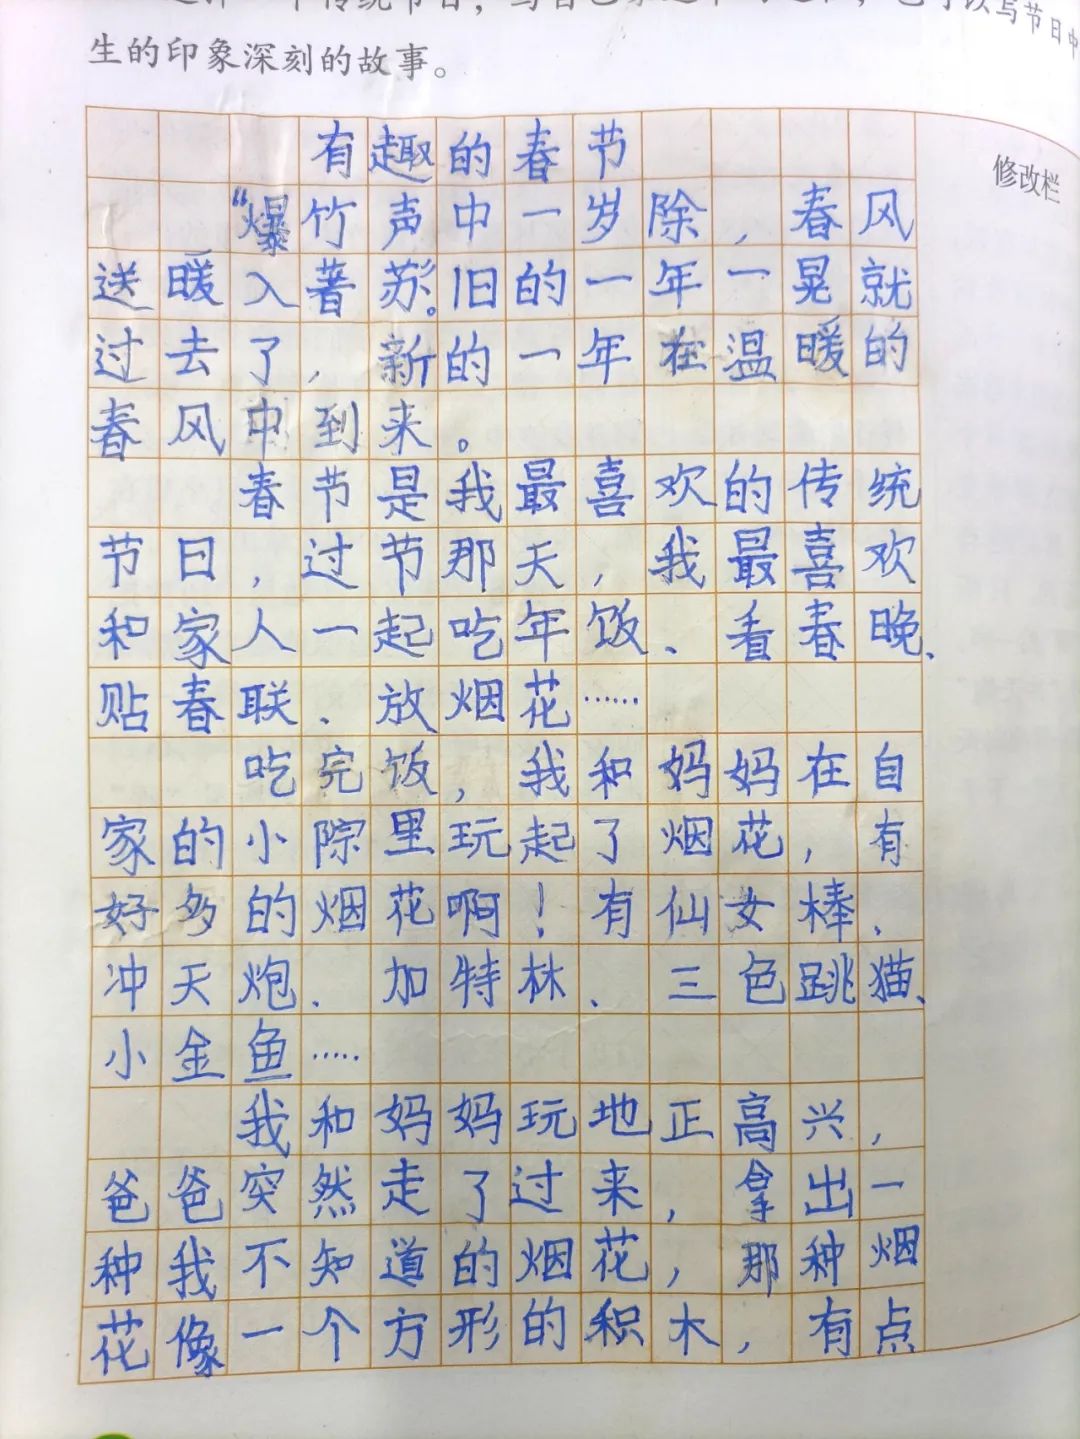 生的印象深刻的故事。
修改栏
有趣的春节
“爆竹声中一岁除，春风
送暖入著苏。旧的一年一晃就
过去了，新的一年在温暖的
春风中到来。
春节是我最喜欢的传统
节日，过节那天，我最喜欢
和家人一起吃年饭、看春晚、
贴春联、放烟花……
吃完饭，我和妈妈在自
家的小院里玩起了烟花，有
好多的烟花啊！有仙女棒、
冲天炮、加特林、三色跳猫、
小金鱼……
我和妈妈玩地正高兴，
爸爸突然走了过来，拿出一
种我不知道的烟花，那种烟
花像一个方形的积木，有点